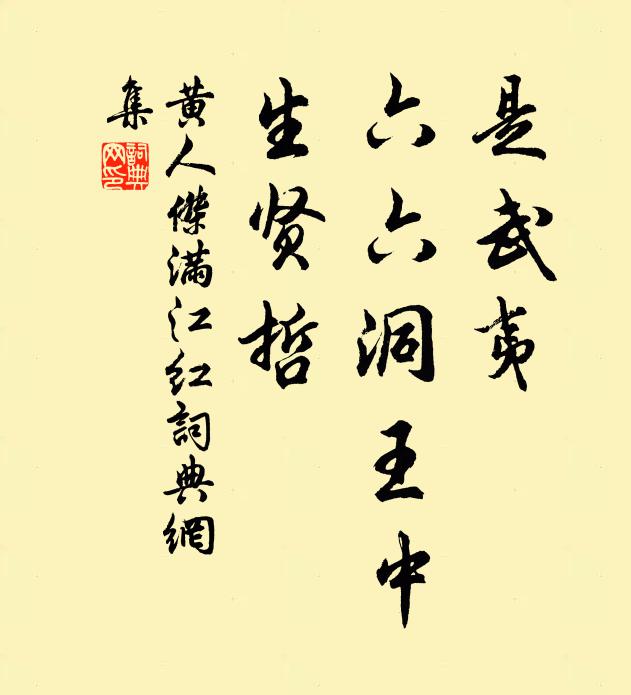 是武夷
六六洞王中
生贤哲
黄人傑满江红詞典網
集
詞典
网印